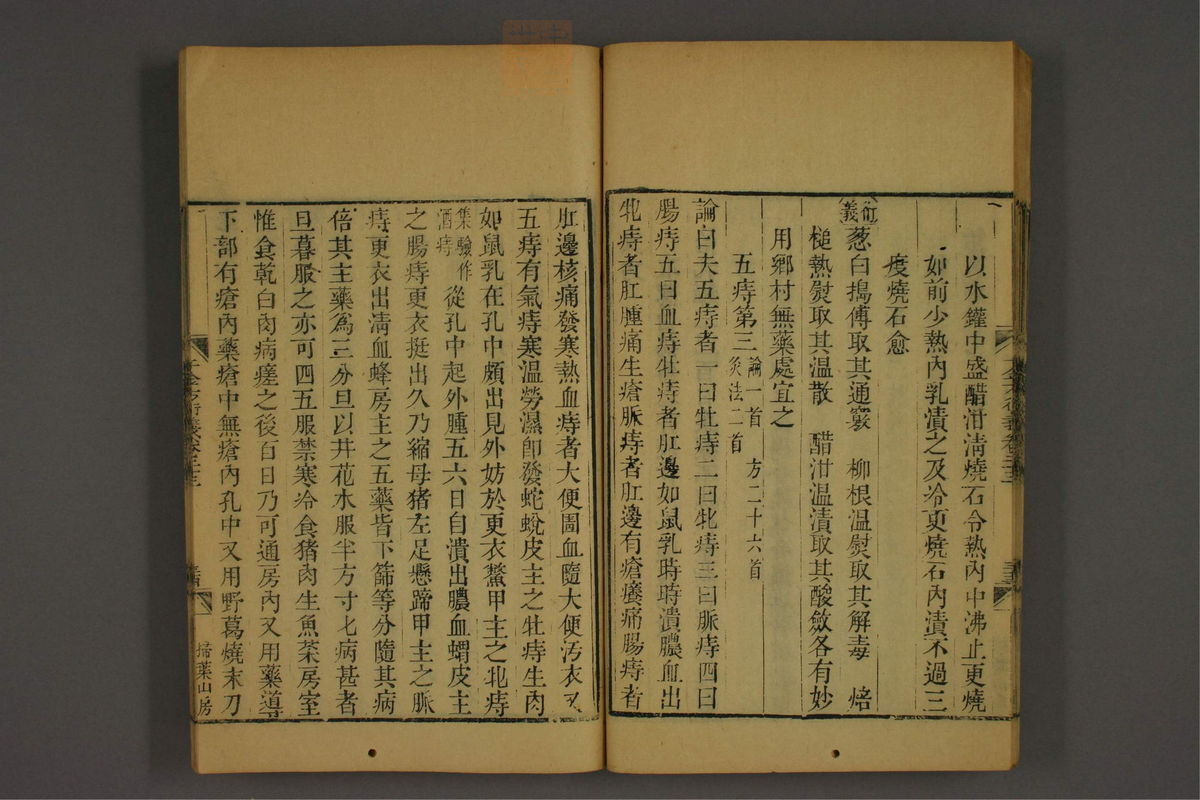 以水鑵中盛醋泔淸燒石令熱內中沸止更燒
如前少熱內乳漬之及冷更燒石內漬不過三
度燒石愈
衍義
葱白搗傅取其通竅　柳根温熨取其解毒　焙
槌熱熨取其温散　醋泔温漬取其酸斂各有妙
用鄉村無藥處宜之
五痔第三　論一首　方二十六首
灸法二首
論曰夫五痔者一曰牡痔二曰牝痔三曰脈痔四曰
腸痔五曰血痔牡痔者肛邊如鼠乳時時潰膿血出
牝痔者肛腫痛生瘡脈痔者肛邊有瘡癢痛腸痔者
肛邊核痛發寒熱血痔者大便圊血隨大便汚衣又
五痔有氣痔寒温勞濕卽發蛇蛻皮主之牡痔生肉
如鼠乳在孔中頗出見外妨於更衣鱉甲主之牝痔
集驗作
酒痔
從孔中起外腫五六日自潰出膿血蝟皮主
之腸痔更衣挺出久乃縮母猪左足懸蹄甲主之脈
痔更衣出淸血蜂房主之五藥皆下篩等分隨其病
倍其主藥爲三分旦以井花水服半方寸匕病甚者
旦暮服之亦可四五服禁寒冷食猪肉生魚菜房室
惟食乾白肉病瘥之後百日乃可通房內又用藥導
下部有瘡內藥瘡中無瘡內孔中又用野葛燒末刀
掃葉山房